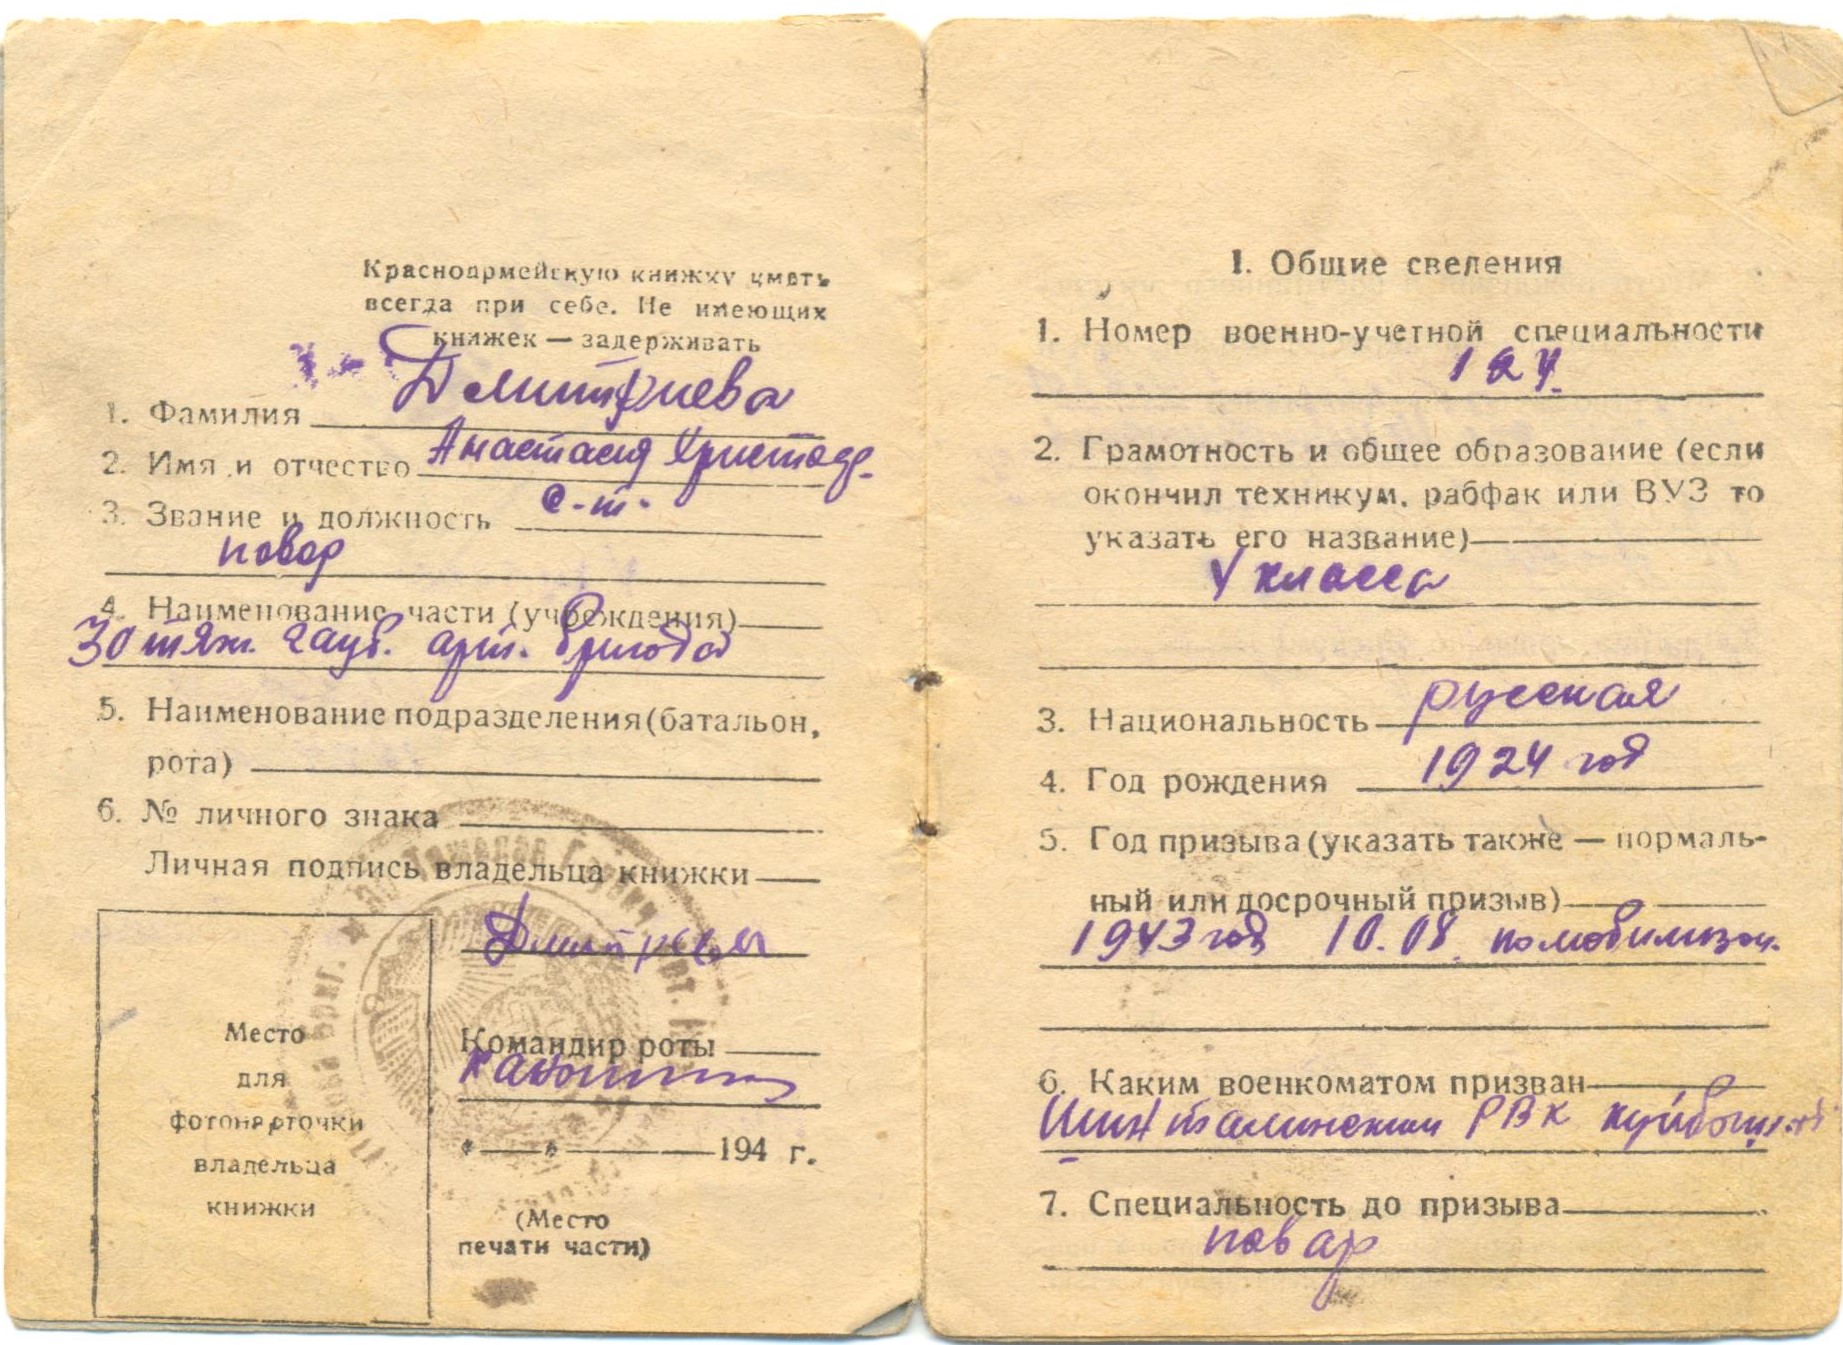 Красноармейскую книжку иметь
всегда при себе. Не имеющих
книжек — задерживать
1. Фамилия Дмитриева
2. Имя и отчество Анастасия Христоф.
3. Звание и должность с-т.
повар
4. Наименование части (учреждения)
30 тяж. гауб. арт. бригада
5. Наименование подразделения (батальон,
рота)
6. № личного знака
Личная подпись владельца книжки
Дмитриева
Место
для
фотокарточки
владельца
книжки
Командир роты
„ — “ 194 г.
(Место
печати части)
I. Общие сведения
1. Номер военно-учетной специальности
124.
2. Грамотность и общее образование (если
окончил техникум, рабфак или ВУЗ то
указать его название)
класса
3. Национальность русская
4. Год рождения 1924 год
5. Год призыва (указать также — нормаль-
ный или досрочный призыв)
1943 год 10.08. по мобилизац.
6. Каким военкоматом призван
РВК
7. Специальность до призыва
повар